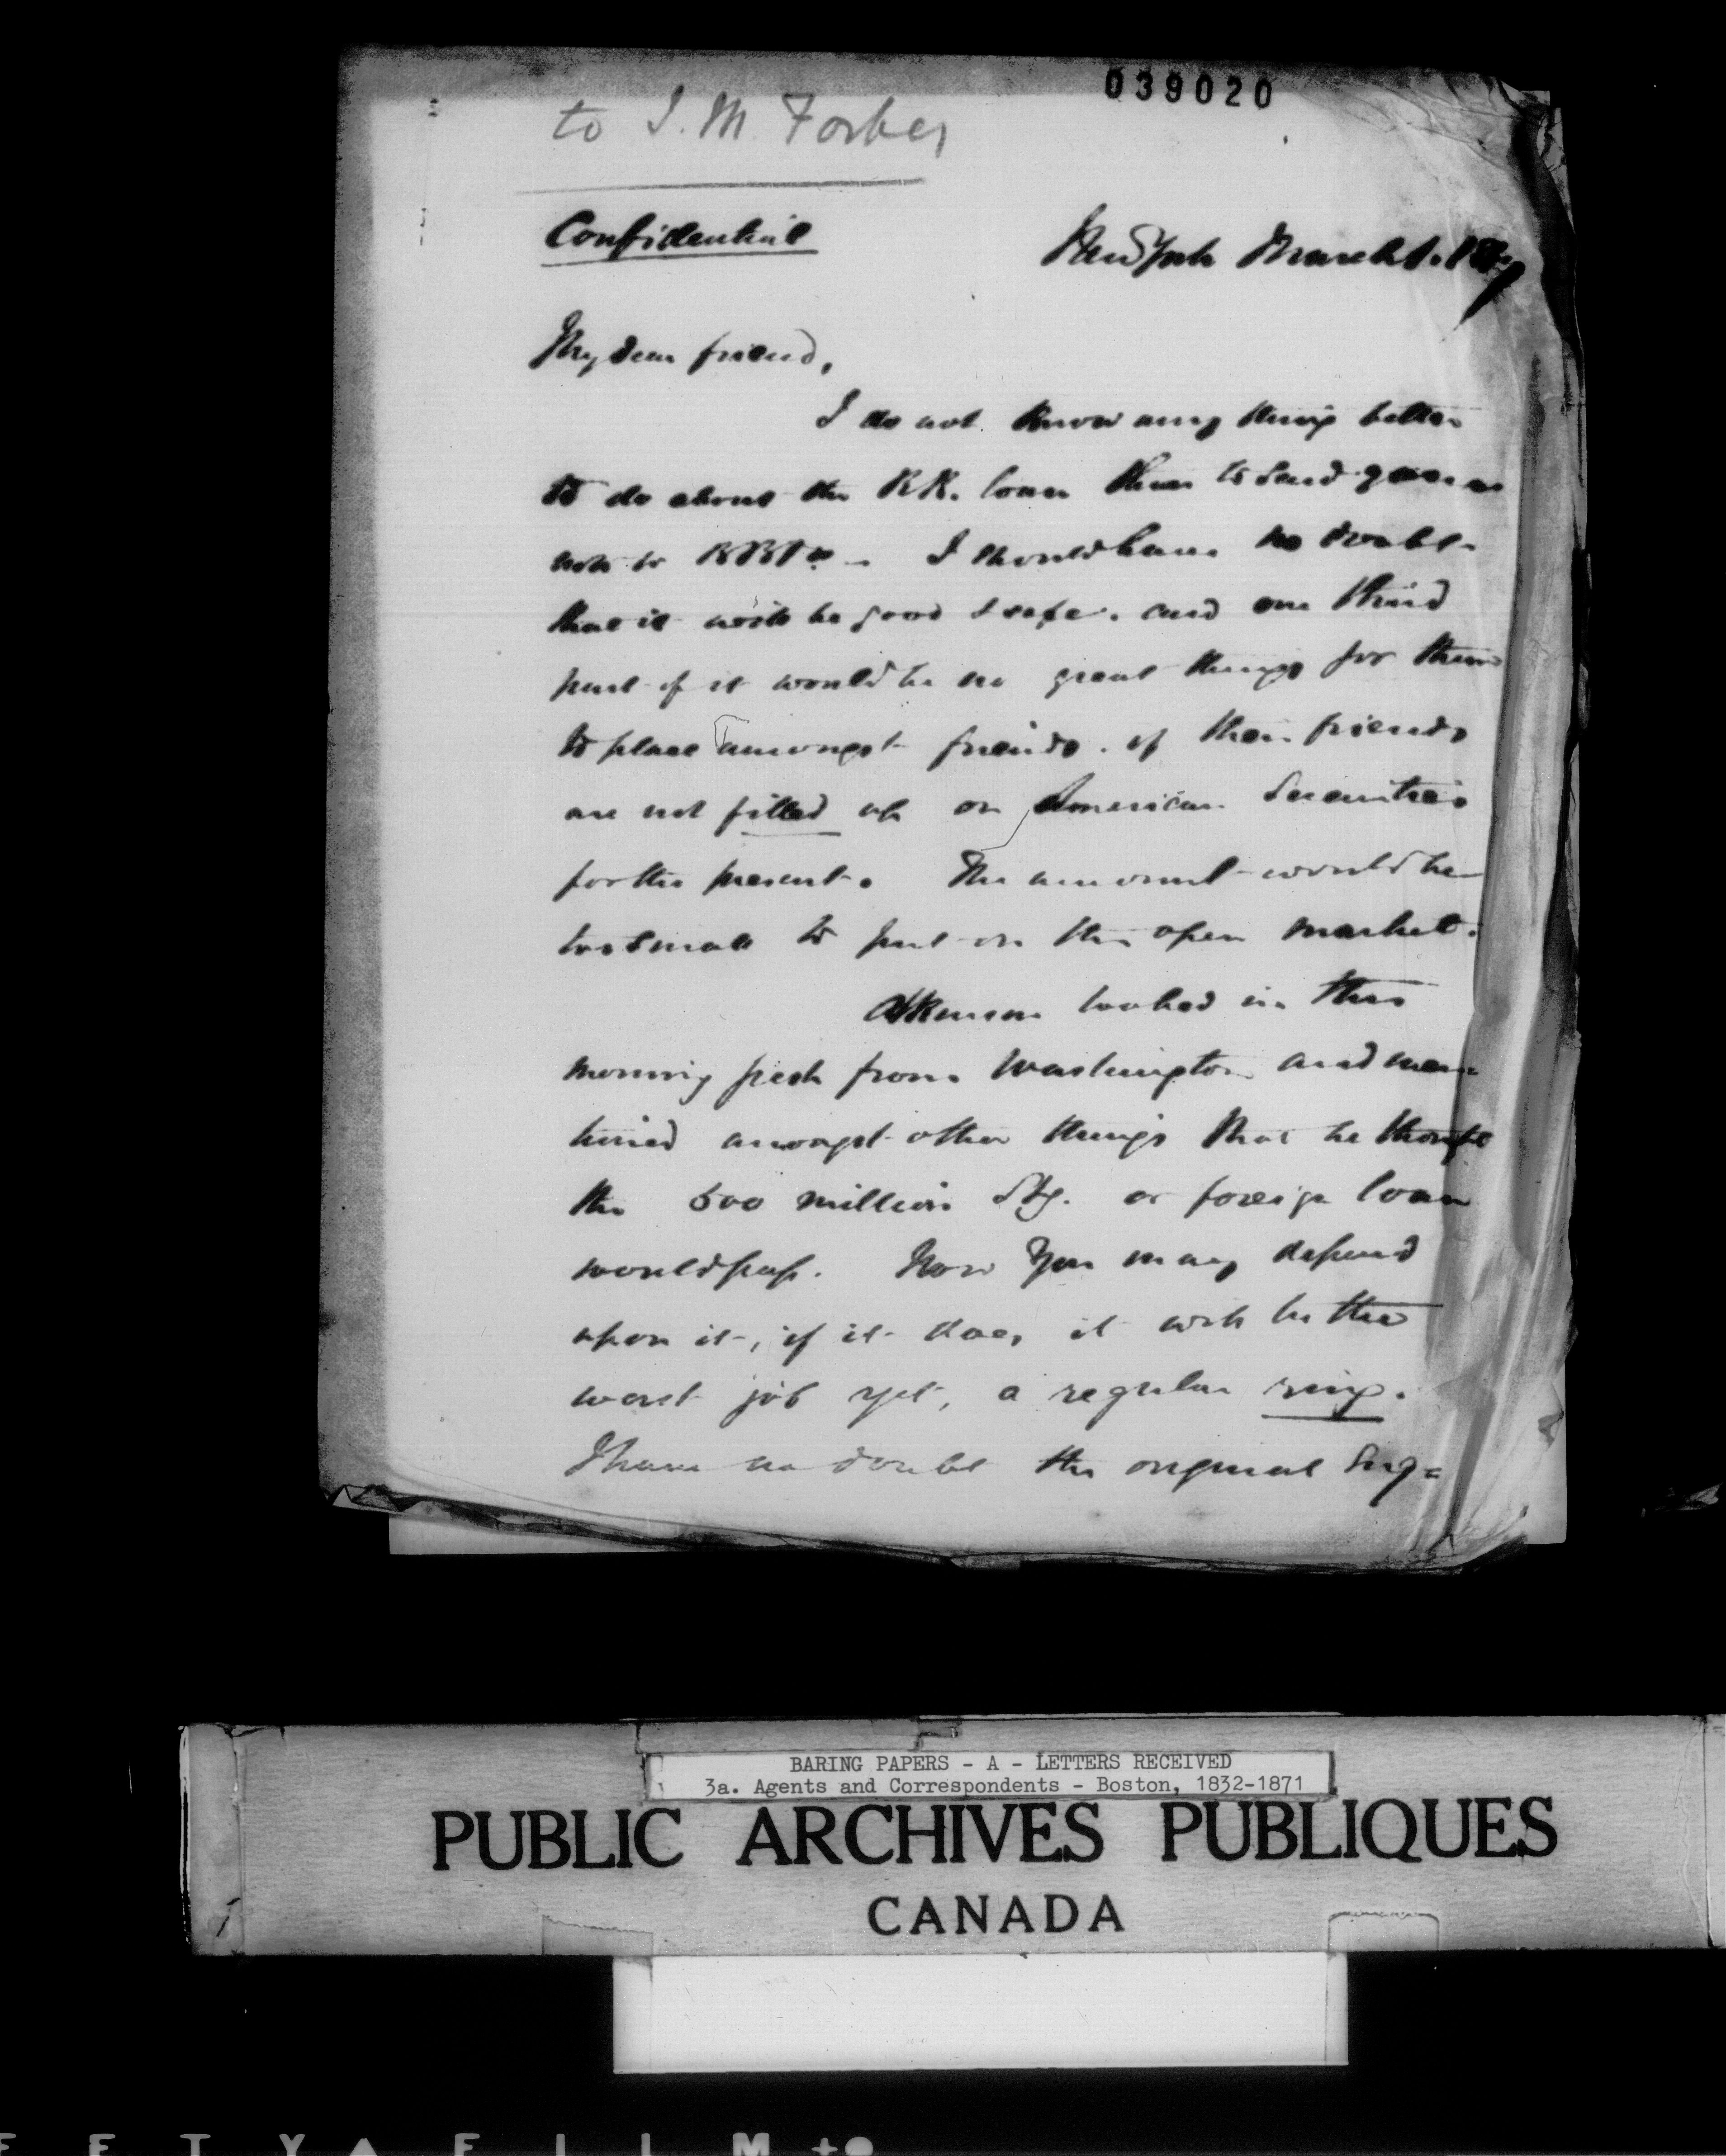 039020
to J. M. Forbes
Confidential
New York March 1. 18
My dear friend,
I do not know any thing better
to do about the RR. loan than to send
note to BB&Co. — I should have no doubt
that it will be good & safe. and one third
part of it would be no great things for them
to place amongst friends. if their friends
are not filled up on American Securities
for the present. The amount would be
too small to put on the open market.
Atkinson looked in this
morning fresh from Washington and men=
tioned amongst other things that he thought
the 500 million Stg. or foreign loan
would pass. Now you may depend
upon it, if it does, it will be the
worst job yet, a regular ring.
I have no doubt the original Sug=
BARING PAPERS - A - LETTERS RECEIVED
3a. Agents and Correspondents - Boston, 1832-1871
PUBLIC ARCHIVES PUBLIQUES
CANADA